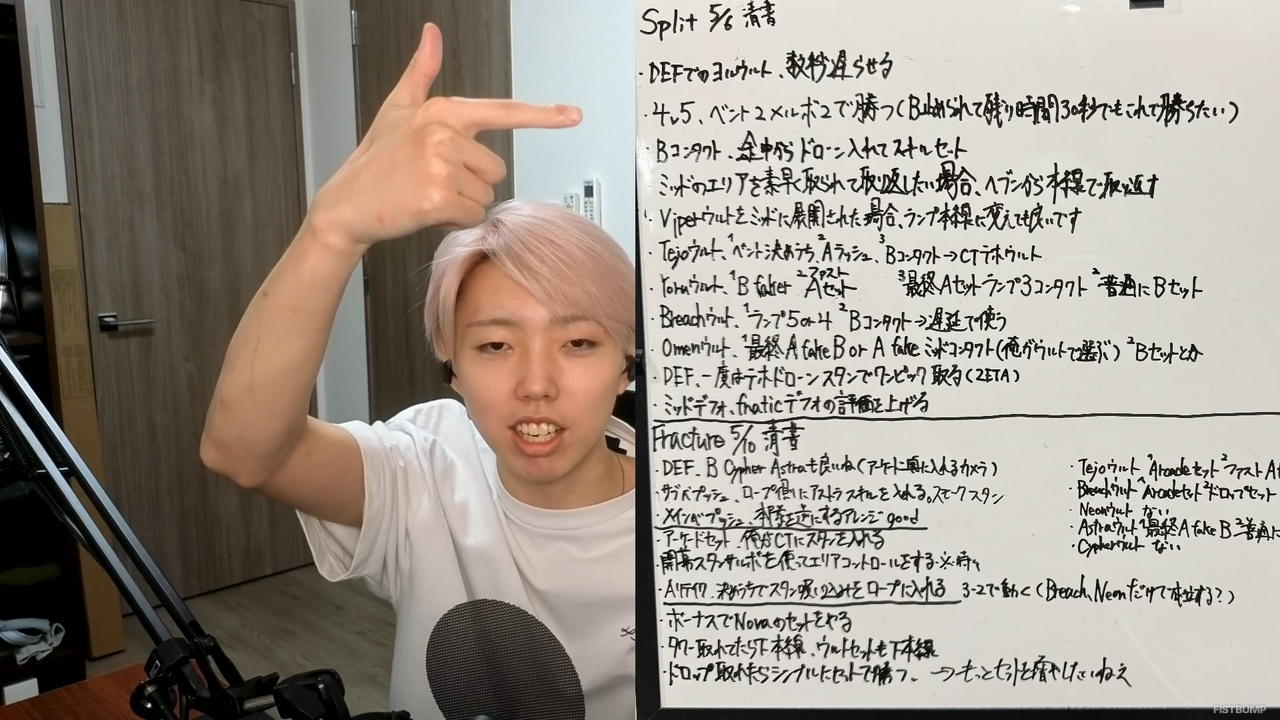 Split 5/6 清書
・DEFでのヨルウルト、数秒遅らせる
・4v5、ベント2メルボ2で勝つ(B止められて残り時間30秒でもこれで勝ちたい)
・Bコンタクト、途中からドローン入れてスキルセット
・ミッドのエリアを素早く取られて取り返したい場合、ヘブンから本線で取り返す
・Viperウルトをミッドに展開された場合、ランプ本線に変えても良いです
・Tejoウルト、¹ベント決めうち、²Aラッシュ、³Bコンタクト→CTテホウルト
・Yoruウルト、¹B faker ²ファスト Aセット ³最終Aセットランプ3コンタクト ²普通にBセット
・Breachウルト、¹ランプ5or4 ²Bコンタクト→遅延で使う
・Omenウルト、¹最終 A fake B or A fake ミッドコンタクト(俺がウルトで選ぶ) ²Bセットとか
・DEF、一度はテホドローンスタンでワンピック取る(ZETA)
・ミッドデフォ、fnaticデフォの評価を上げる
Fracture 5/10 清書
・DEF、B Cypher Astraも良いね(アーケード裏に入れるカメラ)
・サブベプッシュ、ロープ側にアストラスキルを入れる。スモークスタン
・メインベプッシュ、 逆にするアレンジgood
・アーケードセット、俺がCTにスタンを入れる
・開幕スタンサルボを使ってエリアコントロールをする
・Aリテイク、決めうちでスタン吸い込みをロープに入れる 3-2で動く(Breach、Neonだけで )
・ボーナスでNovaのセットをやる
・タワー取れてたら下本線、ウルトセットも下本線
・ドロップ取れたらシンプルにセットで勝つ、→もっとセットを増やしたいねえ
・Tejoウルト、¹Arcadeセット ²ファストA
・Breachウルト、¹Arcadeセット ²ドロップセット
・Neonウルト ない
・Astraウルト ¹最終A fake B ²普通に
・Cypherウルト ない
FISTBUMP